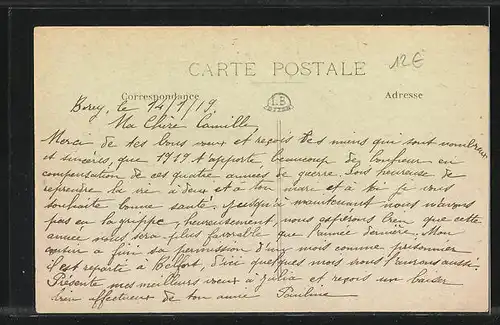 CARTE POSTALE
12€
Correspondance
I.B
Adresse
Borey, le 14/1/19
Ma Chère Camille
Merci de tes bons vœux et reçois les miens qui sont nombreux
et sincères, que 1919 t'apporte beaucoup de bonheur en
compensation de ces quatre années de guerre. Sois heureuse de
reprendre la vie à deux et à ton mari et à toi je vous
souhaite bonne santé. Jusqu'à maintenant nous n'avons
pas eu la grippe, heureusement, nous espérons bien que cette
année nous sera plus favorable que l'année dernière. Mon
a fini sa permission d'un mois comme prisonnier
il est reparti à Belfort, d'ici quelques mois nous l'aurons aussi.
Présente mes meilleurs vœux à Julia et reçois un baiser
bien affectueux de ton amie Pauline